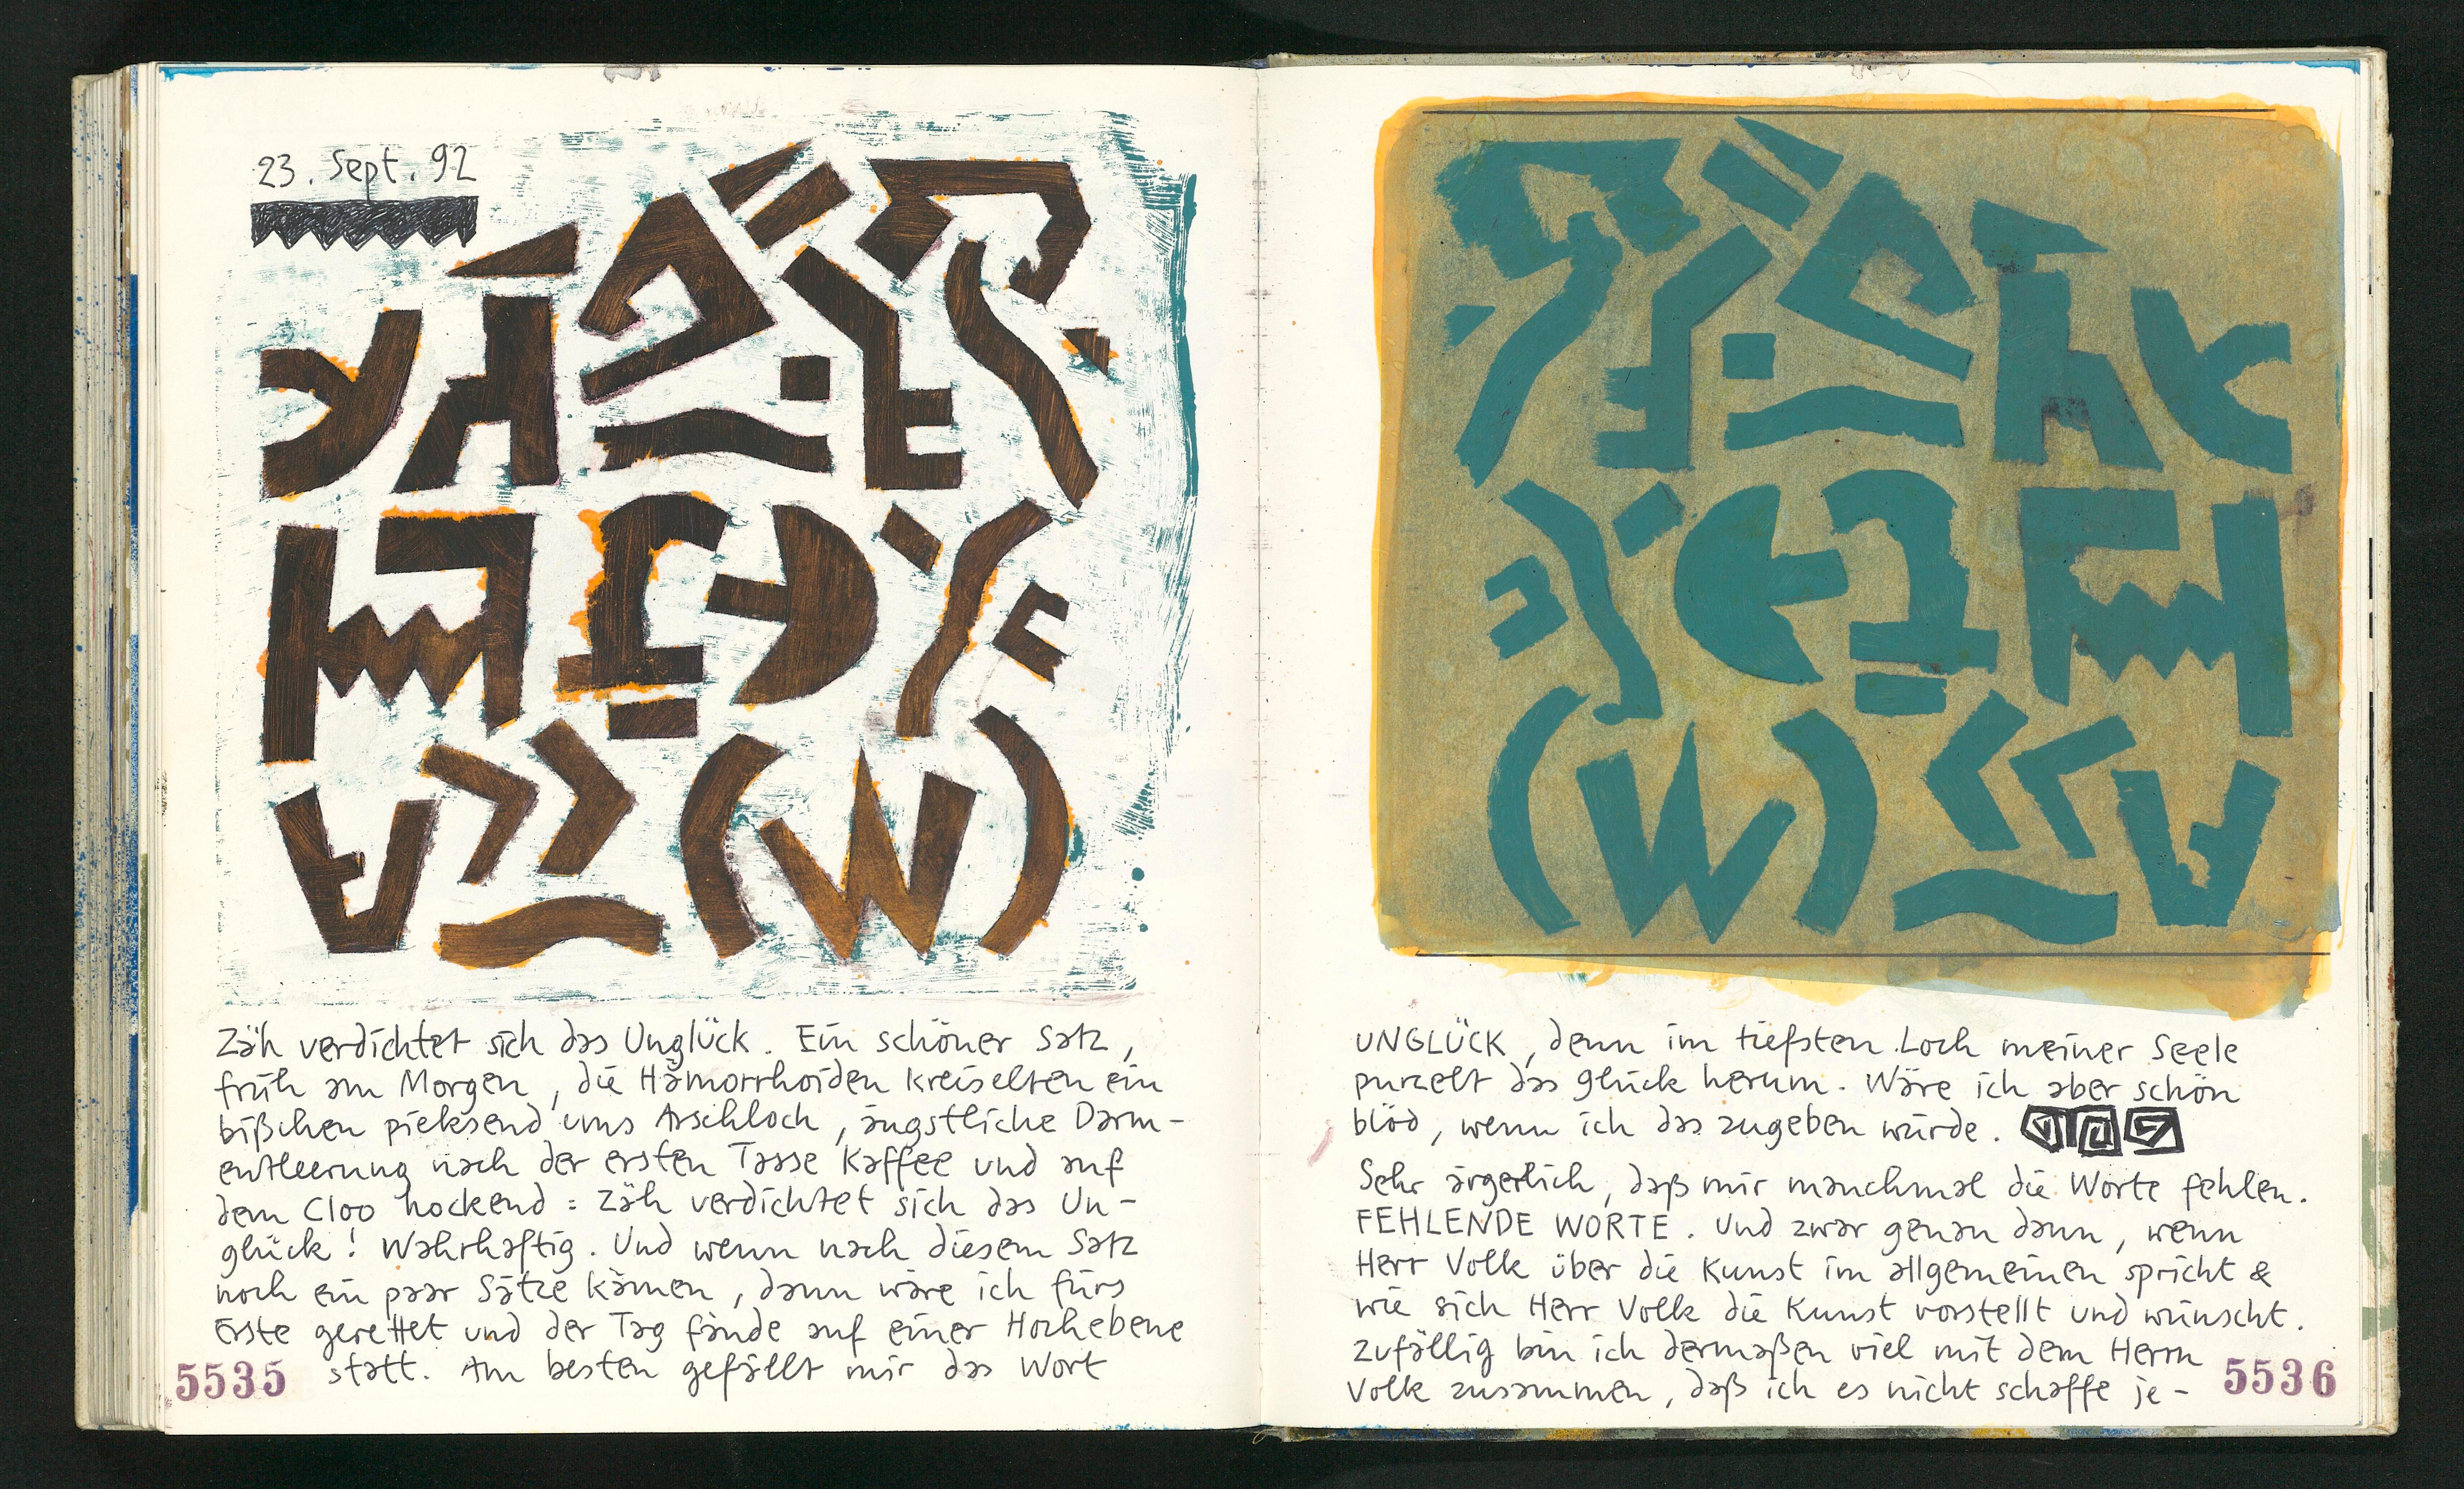 23. Sept. 92
Zäh verdichtet sich das Unglück. Ein schöner Satz,
früh am Morgen, die Hämorrhoiden kreiselten ein
bißchen pieksend ums Arschloch, ängstliche Darm-
entleerung nach der ersten Tasse Kaffee und auf
dem Cloo hockend: Zäh verdichtet sich das Un-
glück! Wahrhaftig. Und wenn nach diesem Satz
noch ein paar Sätze kämen, dann wäre ich fürs
Erste gerettet und der Tag fände auf einer Hochebene
statt. Am besten gefällt mir das Wort
5535
UNGLÜCK, denn im tiefsten Loch meiner Seele
purzelt das Glück herum. Wäre ich aber schön
blöd, wenn ich das zugeben würde.
Sehr ärgerlich, daß mir manchmal die Worte fehlen.
FEHLENDE WORTE. Und zwar genau dann, wenn
Herr Volk über die Kunst im allgemeinen spricht &
wie sich Herr Volk die Kunst vorstellt und wünscht.
Zufällig bin ich dermaßen viel mit dem Herrn
Volk zusammen, daß ich es nicht schaffe je-
5536